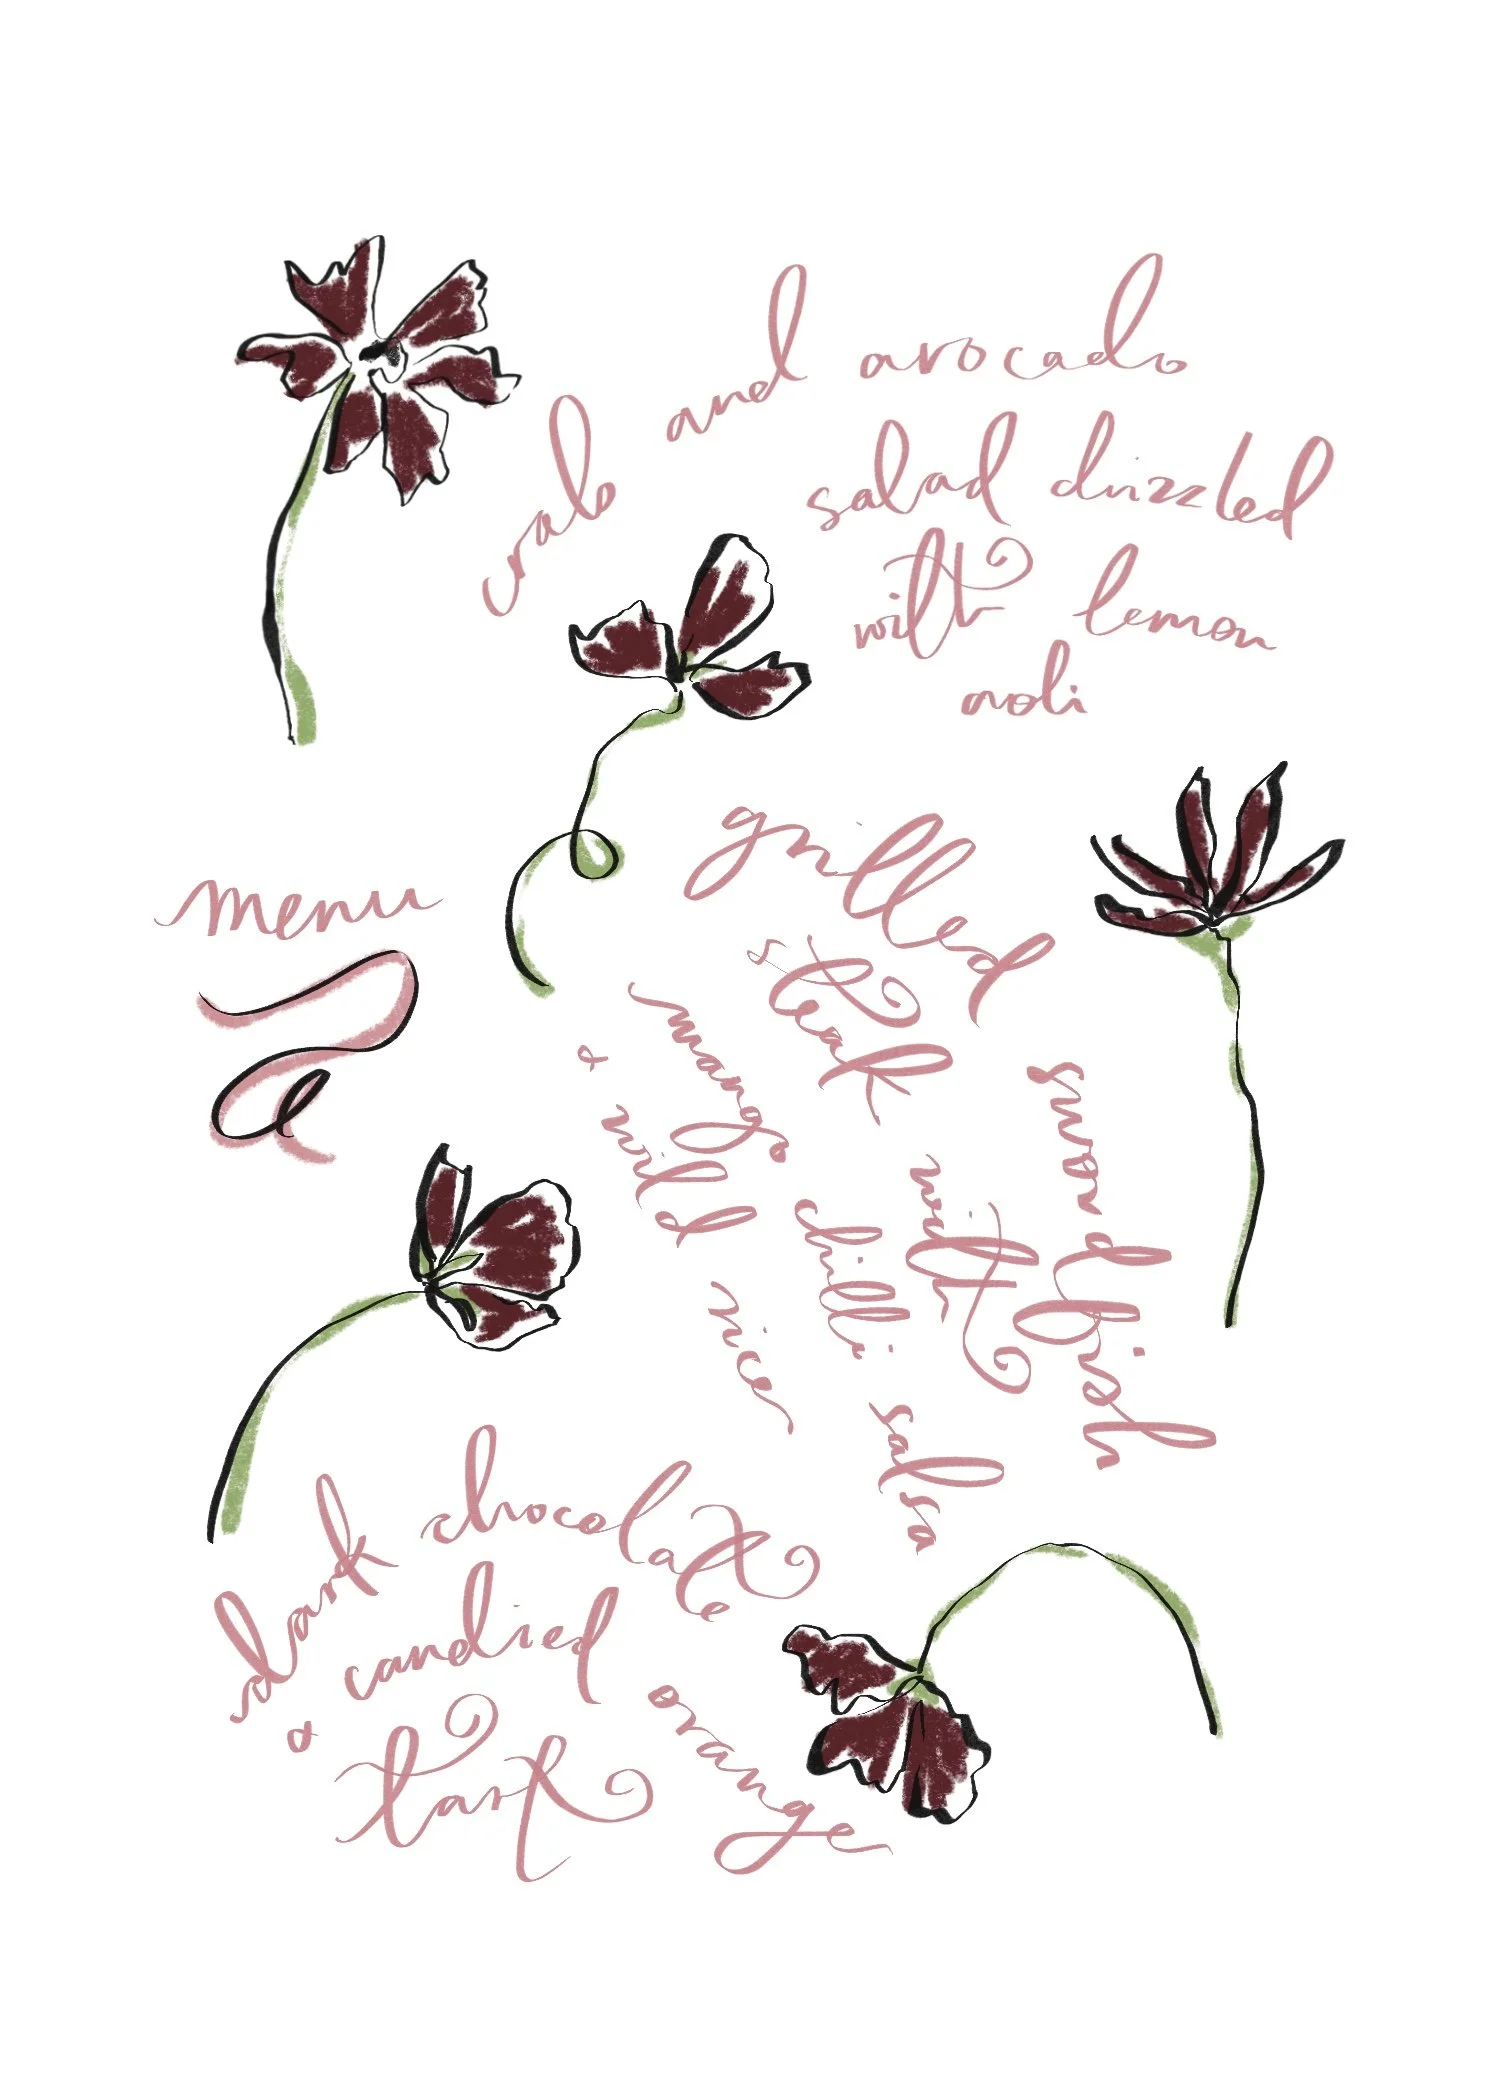 crab and avocado
salad drizzled
with lemon
aoli
menu
grilled swordfish
steak with
mango chilli salsa
& wild rice
dark chocolate
& candied orange
tart